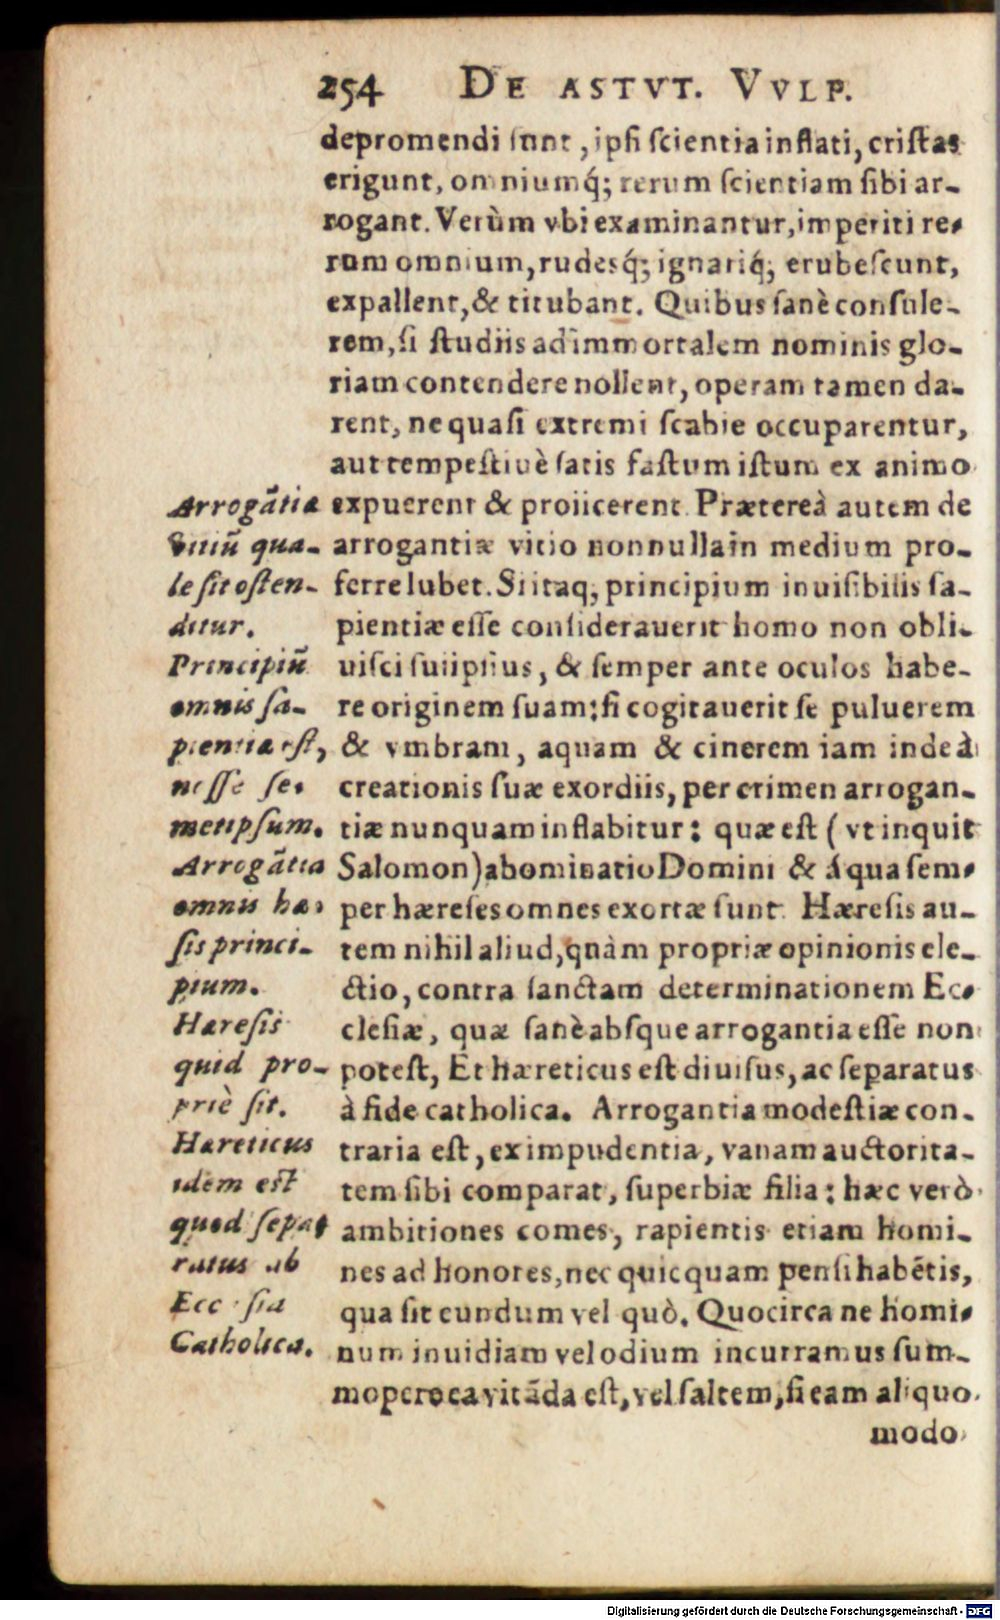 254 DE ASTVT. VVLP.
depromendi sunt, ipsi scientia inflati, cristas
erigunt, omniumq́; rerum scientiam sibi ar-
rogant. Verùm vbi examinantur, imperiti re-
rum omnium, rudesq́; ignariq́; erubescunt,
expallent, & titubant. Quibus sanè consule-
rem, si studiis ad immortalem nominis glo-
riam contendere nollent, operam tamen da-
rent, ne quasi extremi scabie occuparentur,
aut tempestiuè satis fastum istum ex animo
expuerent & proiicerent. Prætereà autem de
arrogantiæ vitio nonnulla in medium pro-
ferre lubet. Si itaq; principium inuisibilis sa-
pientiæ esse considerauerit homo non obli-
uisci suiipsius, & semper ante oculos habe-
re originem suam: si cogitauerit se puluerem
& vmbram, aquam & cinerem iam inde à
creationis suæ exordiis, per crimen arrogan-
tiæ nunquam inflabitur: quæ est ( vt inquit
Salomon) abominatio Domini & á qua sem-
per hæreses omnes exortæ sunt. Hæresis au-
tem nihil aliud, quàm propriæ opinionis ele-
ctio, contra sanctam determinationem Ec-
clesiæ, quæ sanè absque arrogantia esse non
potest, Et hæreticus est diuisus, ac separatus
à fide catholica. Arrogantia modestiæ con-
traria est, ex impudentia, vanam auctorita-
tem sibi comparat, superbiæ filia: hæc verò
ambitiones comes, rapientis etiam homi-
nes ad honores, nec quicquam pensi habētis,
qua sit eundum vel quò. Quocirca ne homi-
num inuidiam vel odium incurramus sum-
mopere ea vitāda est, vel saltem, si eam aliquo
modo
Arrogātia
vitiū qua-
le sit osten-
ditur.
Principiū
omnis sa-
pientia est,
nosse se-
metipsum.
Arrogātia
omnis hæ-
sis princi-
pium.
Hæresis
quid pro-
priè sit.
Hæreticus
idem est
quod sepa-
ratus ab
Ecclesia
Catholica.
Digitalisierung gefördert durch die Deutsche Forschungsgemeinschaft - DFG